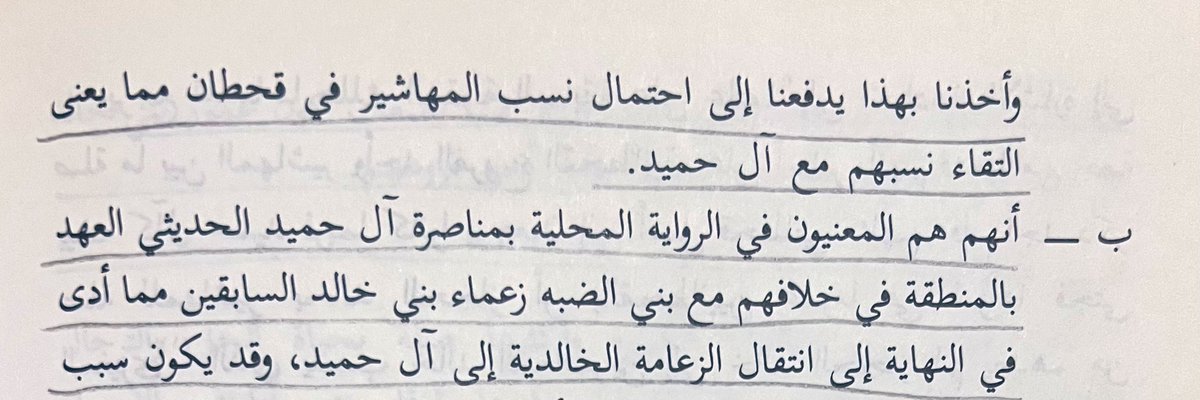 وأخذنا بهذا يدفعنا إلى احتمال نسب المهاشير في قحطان مما يعنى
التقاء نسبهم مع آل حميد.
ب — أنهم هم المعنيون في الرواية المحلية بمناصرة آل حميد الحديثي العهد
بالمنطقة في خلافهم مع بني الضبه زعماء بني خالد السابقين مما أدى
في النهاية إلى انتقال الزعامة الخالدية إلى آل حميد، وقد يكون سبب